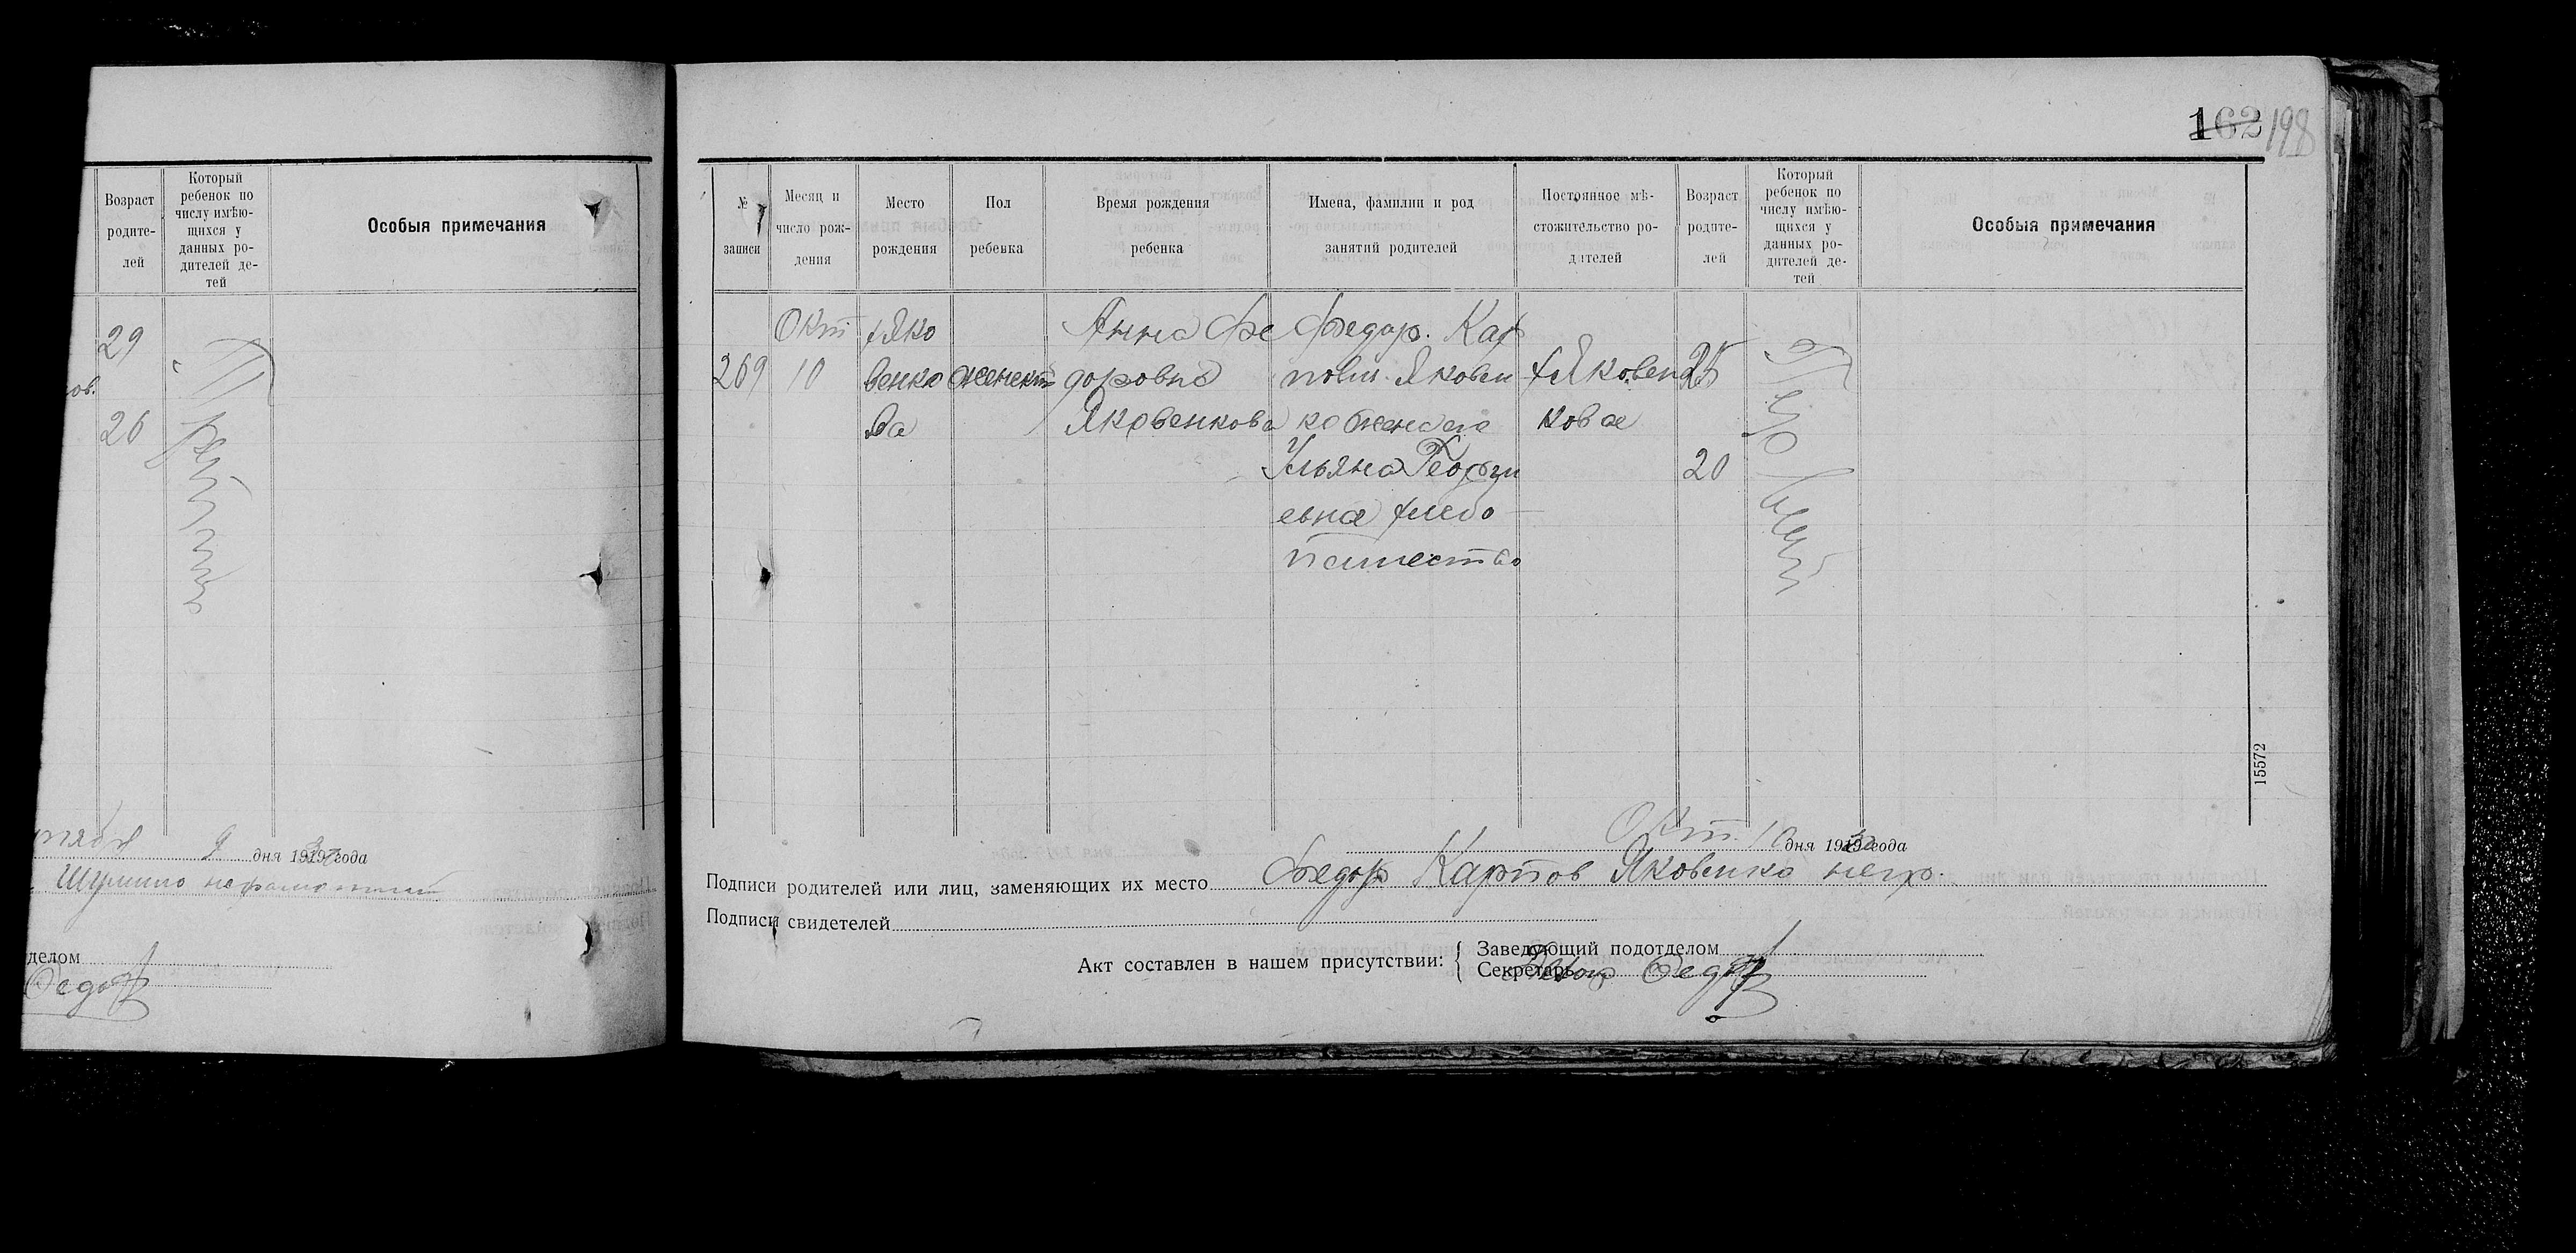 162 198
Возраст родите- лей
Который ребенок по числу имѣю- щихся у данных ро- дителей де- тей
Особыя примечания
29
ов.
26
Третий
9 дня 1919 года
Шумило неграмотный
делом
Федор
№ записи
Месяц и число рож- дения
Место рождения
Пол ребенка
Время рождения ребенка
Имена, фамилии и род занятий родителей
Постоянное мѣ- стожительство ро- дителей
Возраст родите- лей
Который ребенок по числу имѣю- щихся у данных ро- дителей де- тей
Особыя примечания
Окт Яко Анна Фе Федор. Кар
269 10 венко женск доровна пович Яковен Яковен 25
ва Яковенкова ко женат кова
Ульяна Георги 20
евна хлебо
пашество
Первый
15572
Окт. 10 дня 1919 года
Подписи родителей или лиц, заменяющих их место Федор Карпов Яковенко негр.
Подписи свидетелей
Акт составлен в нашем присутствии: { Заведующий подотделом
Секретарь